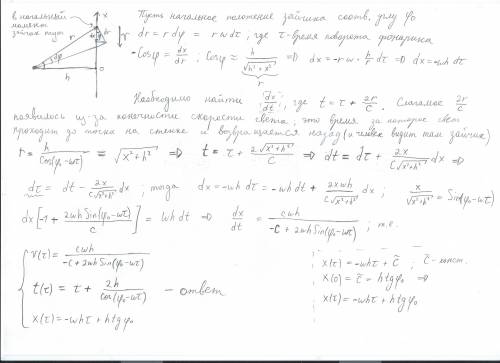 в начальный
момент
зайчик тут
x
dr
r
dφ
h
0
Пусть начальное положение зайчика соотв. углу φ₀
dr = r dφ = r w dτ, где τ-время поворота фонарика
-Cosφ = dx/dr ; Cosφ = h/√(h²+x²) ⇒ dx = -r w · h/r dτ ⇒ dx = -wh dτ
r
Необходимо найти dx/dt, где t = τ + 2r/c. Слагаемое 2r/c
появилось из-за конечности скорости света, это время за которое свет
проходит до точки на стенке и возвращается назад (и человек видит там зайчик)
r = h/cos(φ₀-wτ) = √(x²+h²) ⇒ t = τ + 2√(x²+h²)/c ⇒ dt = dτ + 2x/(c√(x²+h²)) dx ⇒
dτ = dt - 2x/(c√(x²+h²)) dx ; тогда dx = -wh dτ = -wh dt + 2xwh/(c√(x²+h²)) dx ; x/√(x²+h²) = Sin(φ₀-wτ)
dx[-1 + 2wh Sin(φ₀-wτ)/c] = wh dt ⇒ dx/dt = cwh/(-c + 2wh Sin(φ₀-wτ)) ; т.е.
v(τ) = cwh/(-c + 2wh Sin(φ₀-wτ))
t(τ) = τ + 2h/cos(φ₀-wτ) - ответ
x(τ) = -whτ + h tgφ₀
x(τ) = -whτ + c̃ ; c̃-конст.
x(0) = c̃ = h tgφ₀ ⇒
x(τ) = -whτ + h tgφ₀